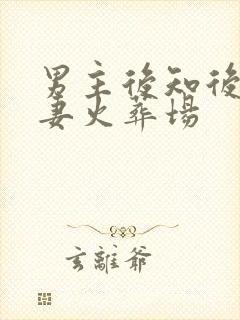 男主後知後
妻火葬場
玄離爺